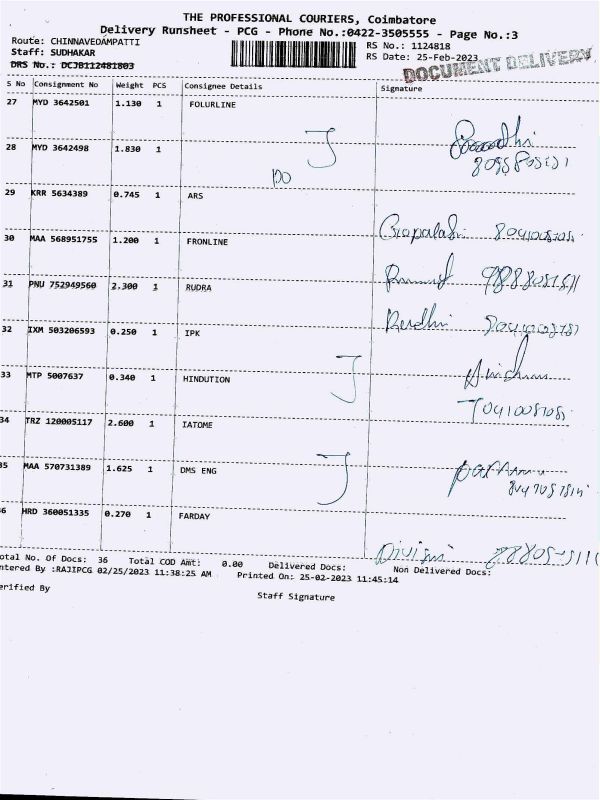 THE PROFESSIONAL COURIERS, Coimbatore
Delivery Runsheet - PCG - Phone No.:0422-3505555 - Page No.:3
Route: CHINNAVEDAMPATTI
RS No.: 1124818
Staff: SUDHAKAR
RS Date: 25-Feb-2023
DRS No.: DCJB112481803
DOCUMENT DELIVERY
S No Consignment No Weight PCS Consignee Details Signature
27 MYD 3642501 1.130 1 FOLURLINE
28 MYD 3642498 1.830 1
DO
29 KRR 5634389 0.745 1 ARS
30 MAA 568951755 1.200 1 FRONLINE
31 PNU 752949560 2.300 1 RUDRA
32 IXM 503206593 0.250 1 IPK
33 MTP 5007637 0.340 1 HINDUTION
34 TRZ 120005117 2.600 1 IATOME
35 MAA 570731389 1.625 1 DMS ENG
36 HRD 360051335 0.270 1 FARDAY
otal No. Of Docs: 36 Total COD Amt: 0.00 Delivered Docs: Non Delivered Docs:
ntered By :RAJIPCG 02/25/2023 11:38:25 AM Printed On: 25-02-2023 11:45:14
erified By
Staff Signature